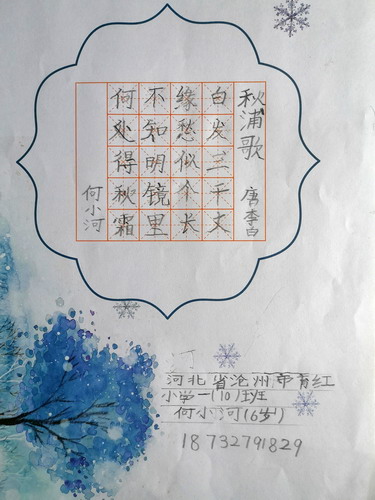 秋浦歌 唐李白
白发三千丈
缘愁似个长
不知明镜里
何处得秋霜
何小河
河北省沧州市育红
小学一(10)班
何小河(6岁)
18732791829